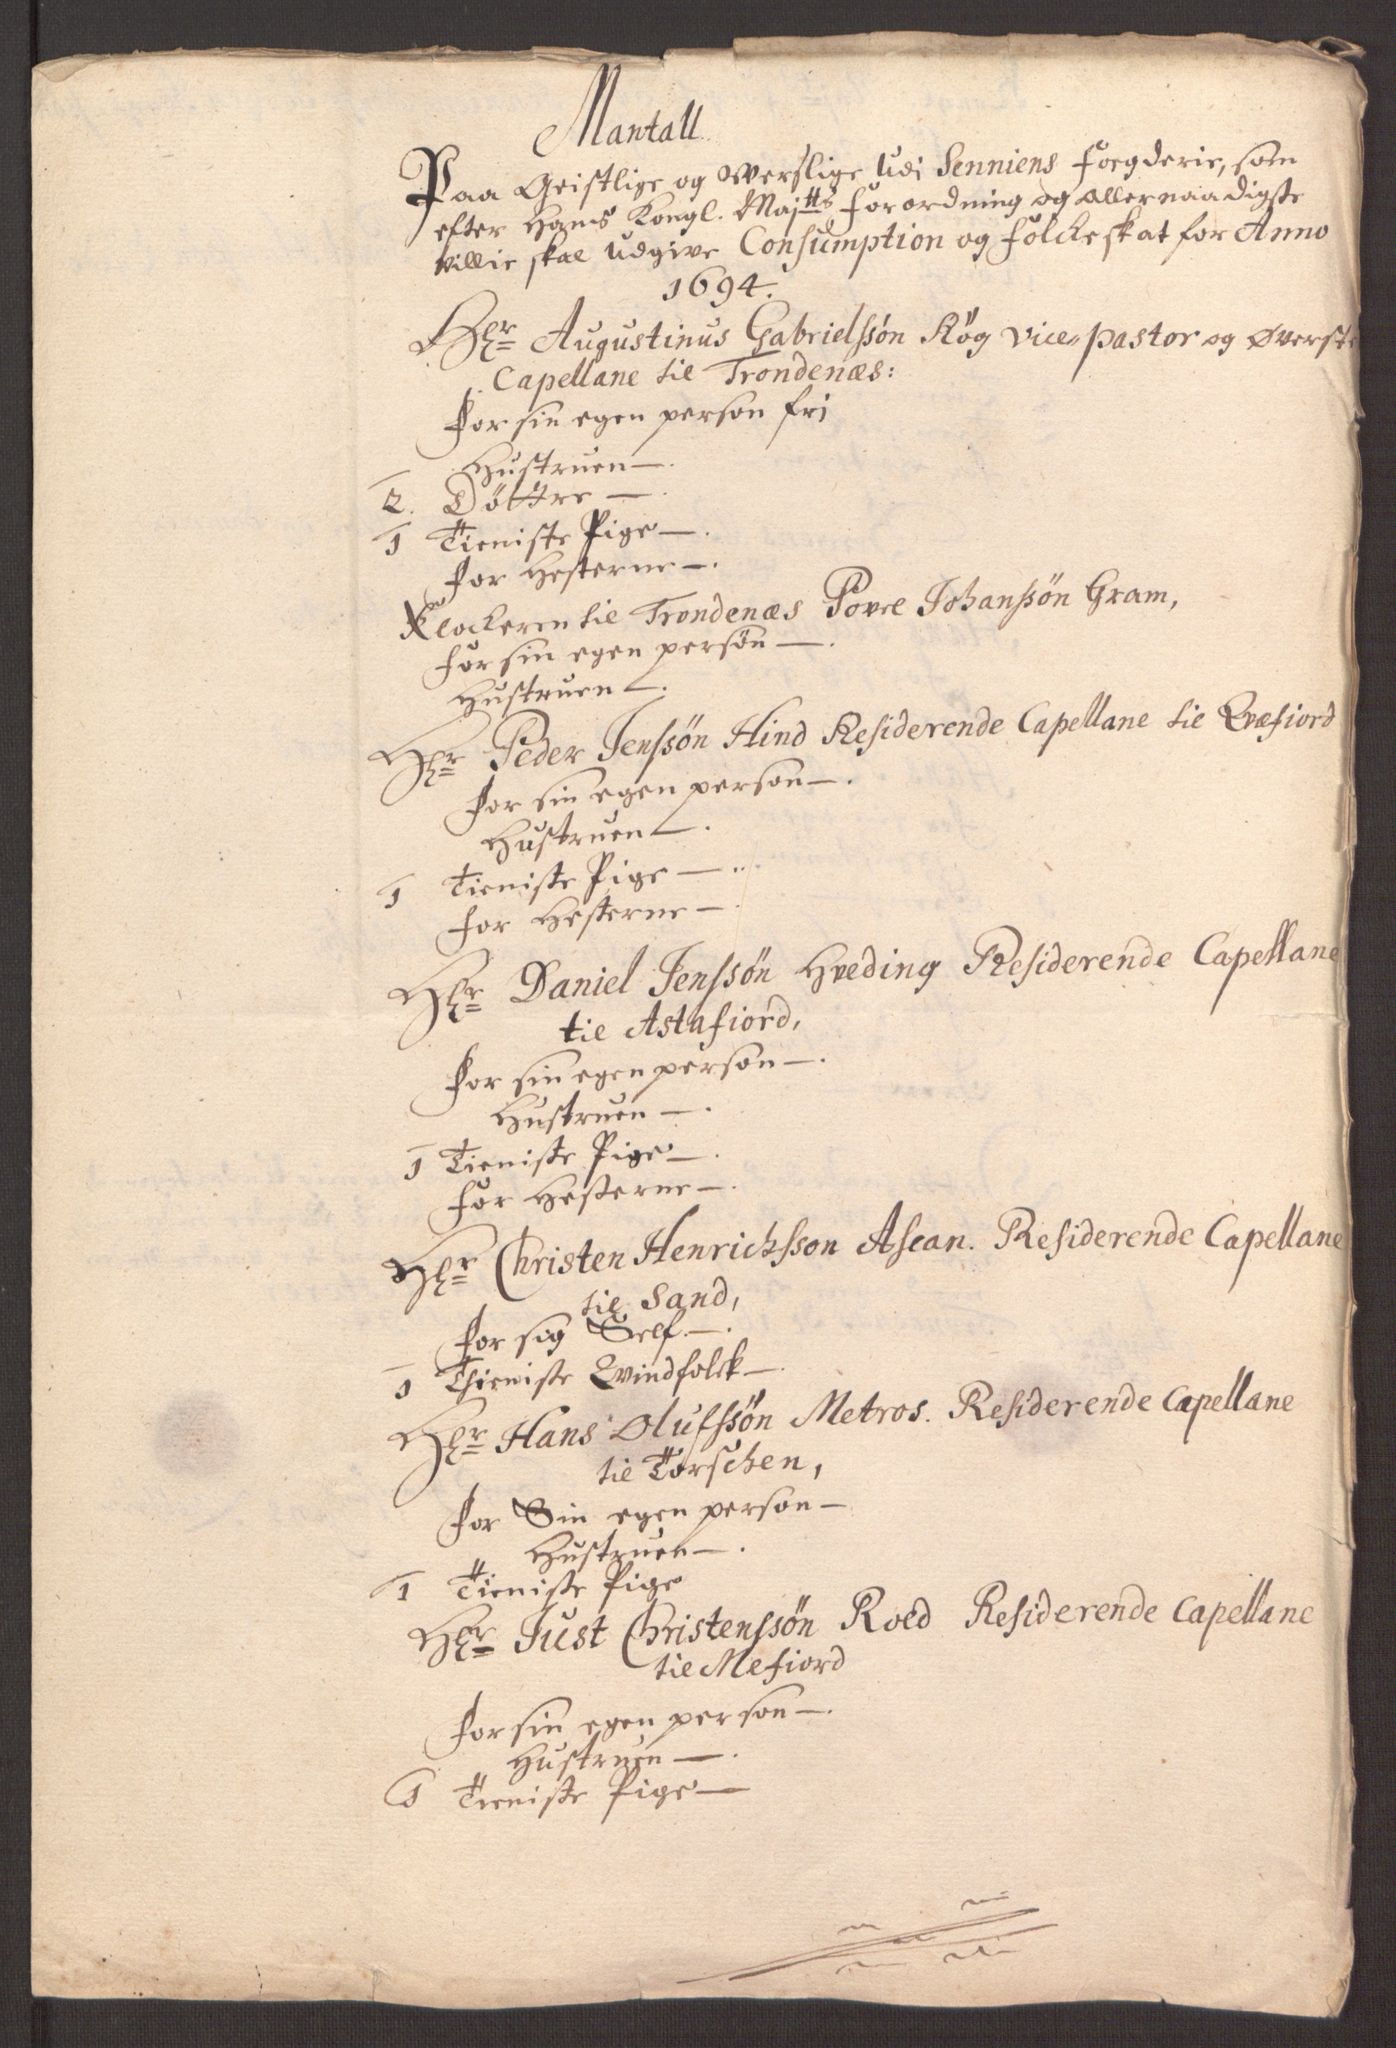 Mantall
Paa Geistlige og Werslige udi Senniens Foegderie, som
efter Hans Kongl. Maj:tts Forordning og allernaadigste
villie skal udgive Consumption og folckeskat for Anno
1694.
Hr Augustinus Gabrielssøn Røg vice-pastor og øverste
Capellane til Trondenæs:
for sin egen person fri
Hustruen —.
2. Døttre —.
1 Tieniste Pige —.
for Hesterne —.
Klockeren til Trondenæs Povel Johanssøn Gram,
for sin egen persøn —.
Hustruen —.
Hr Peder Jenssøn Hind Residerende Capellane til Qvæfiord
for sin egen person —.
Hustruen —.
1 Tieniste Pige —.
for Hesterne —.
Hr Daniel Jenssøn Hveding Residerende Capellane
til Astafiord,
for sin egen person —.
Hustruen —.
1 Tieniste Pige —.
for Hesterne —.
Hr Christen Henrichsson Ascan. Residerende Capellane
til Sand,
for sig Self —.
1 Thieniste Qvindfolck —.
Hr Hans Olufssøn Metros. Residerende Capellane
til Torschen,
for Sin egen person —
Hustruen —.
1 Tieniste Pige
Hr Just Christenssøn Roed Residerende Capellane
til Mefiord
for sin egen person —.
Hustruen —.
1 Tieniste Pige —